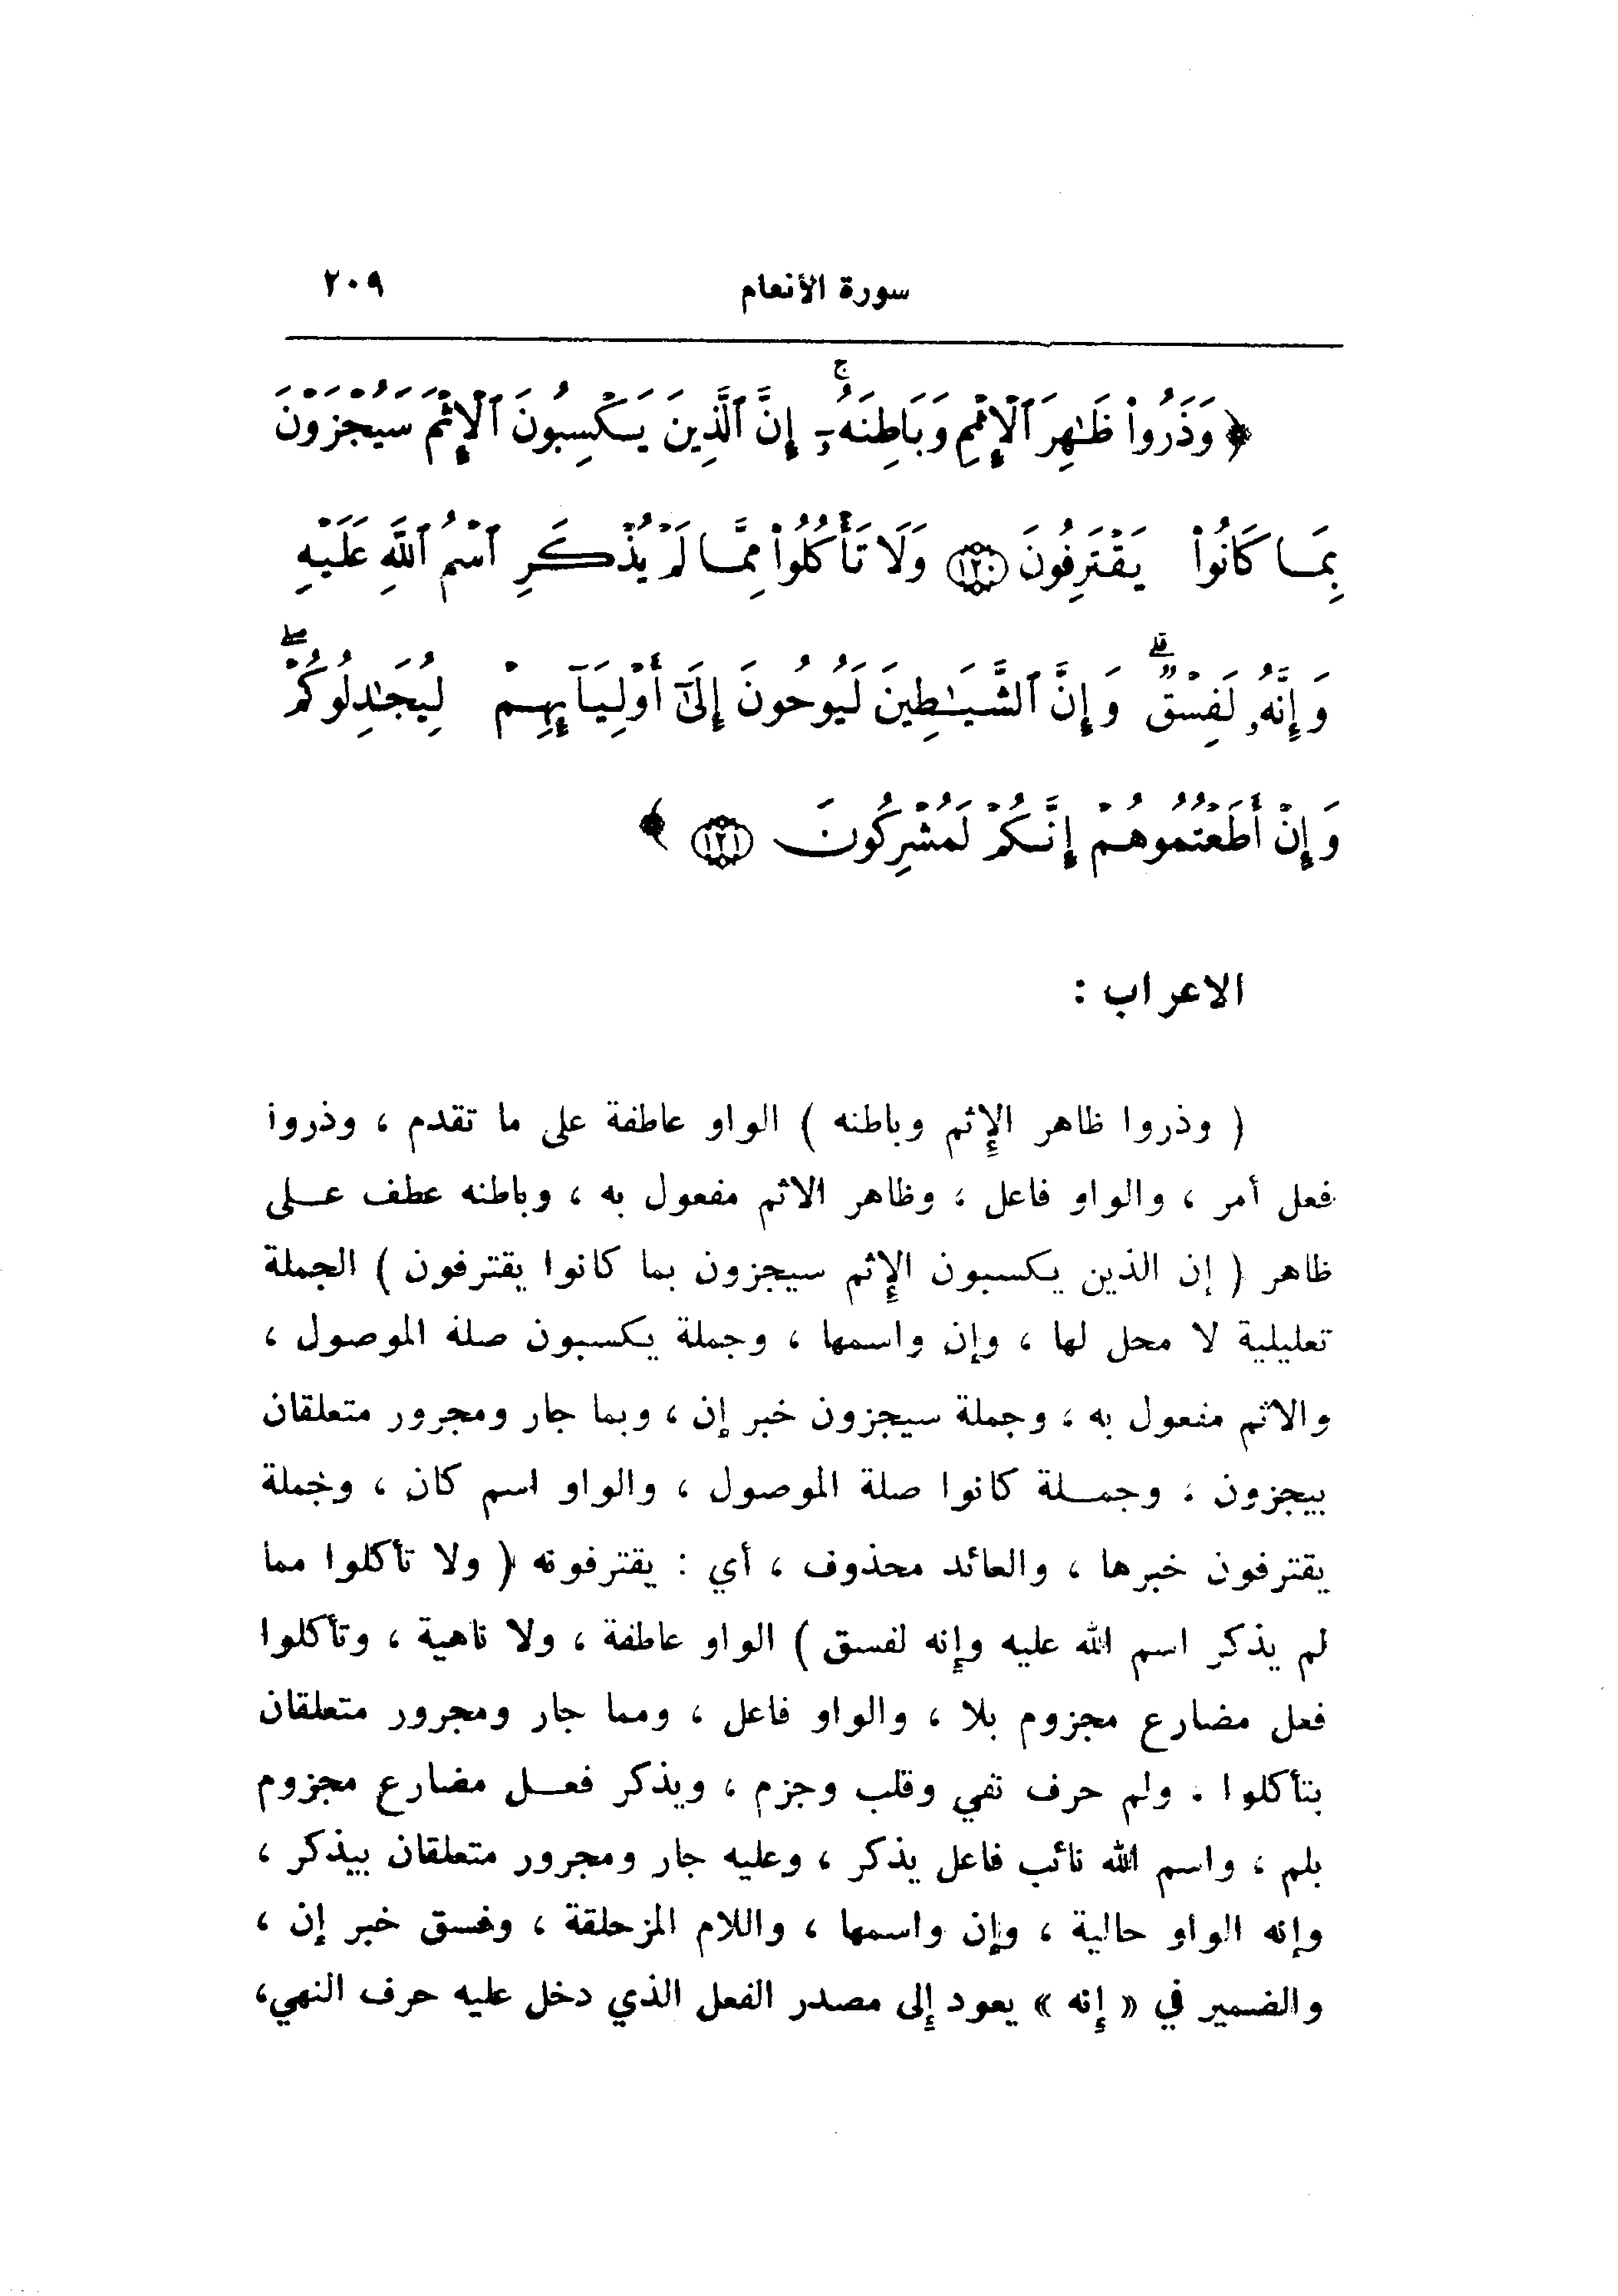 سورة الأنعام ٢٠٩
﴿ وَذَرُوا۟ ظَـٰهِرَ ٱلْإِثْمِ وَبَاطِنَهُۥٓ ۚ إِنَّ ٱلَّذِينَ يَكْسِبُونَ ٱلْإِثْمَ سَيُجْزَوْنَ
بِمَا كَانُوا۟ يَقْتَرِفُونَ ١٢٠ وَلَا تَأْكُلُوا۟ مِمَّا لَمْ يُذْكَرِ ٱسْمُ ٱللَّهِ عَلَيْهِ
وَإِنَّهُۥ لَفِسْقٌ ۗ وَإِنَّ ٱلشَّيَـٰطِينَ لَيُوحُونَ إِلَىٰٓ أَوْلِيَآئِهِمْ لِيُجَـٰدِلُوكُمْ ۖ
وَإِنْ أَطَعْتُمُوهُمْ إِنَّكُمْ لَمُشْرِكُونَ ١٢١ ﴾
الاعراب :
( وذروا ظاهر الإثم وباطنه ) الواو عاطفة على ما تقدم ، وذروا
فعل أمر ، والواو فاعل ، وظاهر الاثم مفعول به ، وباطنه عطف على
ظاهر ( إن الذين يكسبون الإثم سيجزون بما كانوا يقترفون ) الجملة
تعليلية لا محل لها ، وإن واسمها ، وجملة يكسبون صلة الموصول ،
والاثم مفعول به ، وجملة سيجزون خبر إن ، وبما جار ومجرور متعلقان
بيجزون ، وجملة كانوا صلة الموصول ، والواو اسم كان ، وجملة
يقترفون خبرها ، والعائد محذوف ، أي : يقترفونه ( ولا تأكلوا مما
لم يذكر اسم الله عليه وإنه لفسق ) الواو عاطفة ، ولا ناهية ، وتأكلوا
فعل مضارع مجزوم بلا ، والواو فاعل ، ومما جار ومجرور متعلقان
بتأكلوا . ولم حرف نفي وقلب وجزم ، ويذكر فعل مضارع مجزوم
بلم ، واسم الله نائب فاعل يذكر ، وعليه جار ومجرور متعلقان بيذكر ،
وإنه الواو حالية ، وإن واسمها ، واللام المزحلقة ، وفسق خبر إن ،
والضمير في « إنه » يعود إلى مصدر الفعل الذي دخل عليه حرف النهي،